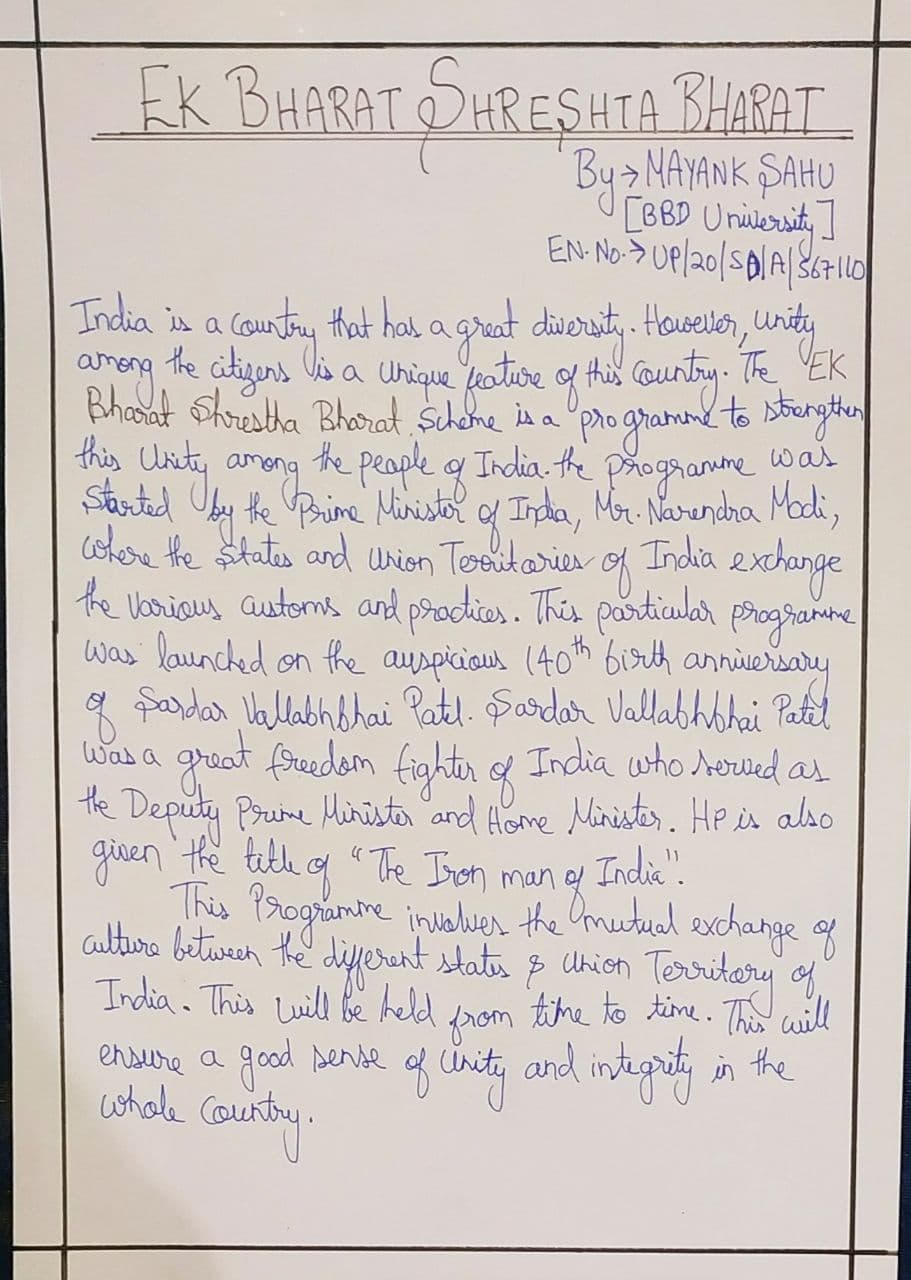 EK BHARAT SHRESHTA BHARAT
By → MAYANK SAHU
[BBD University]
EN. No. → UP/20/SD/A/567110
India is a country that has a great diversity. However, unity
among the citizens is a unique feature of this country. The EK
Bharat Shrestha Bharat Scheme is a programme to strengthen
this Unity among the people of India. the programme was
Started by the Prime Minister of India, Mr. Narendra Modi,
where the States and Union Territories of India exchange
the various customs and practices. This particular programme
was launched on the auspicious 140th birth anniversary
of Sardar Vallabhbhai Patel. Sardar Vallabhbhai Patel
was a great freedom fighter of India who served as
the Deputy Prime Minister and Home Minister. He is also
given the title of "The Iron man of India".
This Programme involves the mutual exchange of
culture between the different states & Union Territory of
India. This will be held from time to time. This will
ensure a good sense of Unity and integrity in the
whole Country.